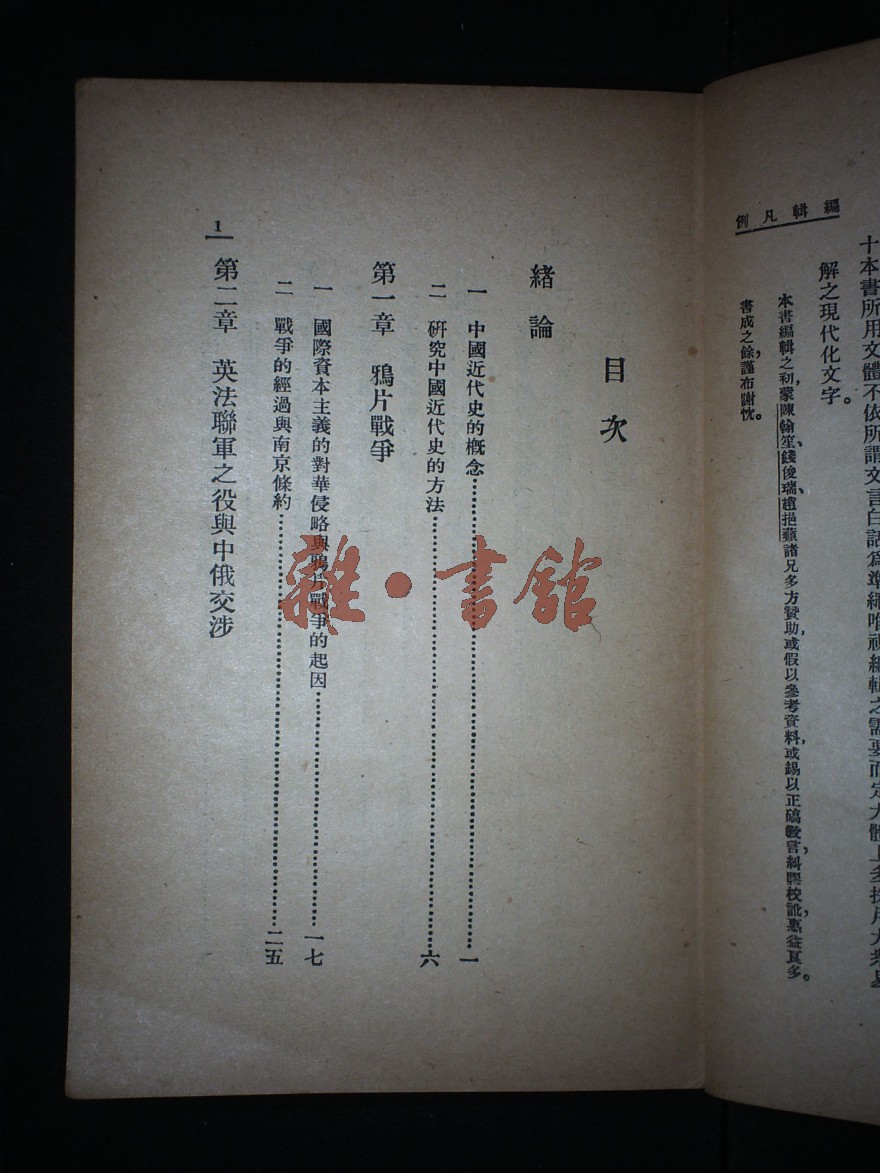 編輯凡例
十本書所用文體不依所謂文言白話爲準繩唯視編輯之需要而定大體上多採用大衆易
解之現代化文字。
本書編輯之初，蒙陳翰笙、錢俊瑞、趙挹蘋諸兄多方贊助，或假以參考資料，或錫以正確發言，糾謬校訛，惠益良多。
書成之餘，謹布謝忱。
目次
緒論
一 中國近代史的槪念……一
二 硏究中國近代史的方法……六
第一章 鴉片戰爭
一 國際資本主義的對華侵略與鴉片戰爭的起因……一七
二 戰爭的經過與南京條約……二五
第二章 英法聯軍之役與中俄交涉
1
雜·書館